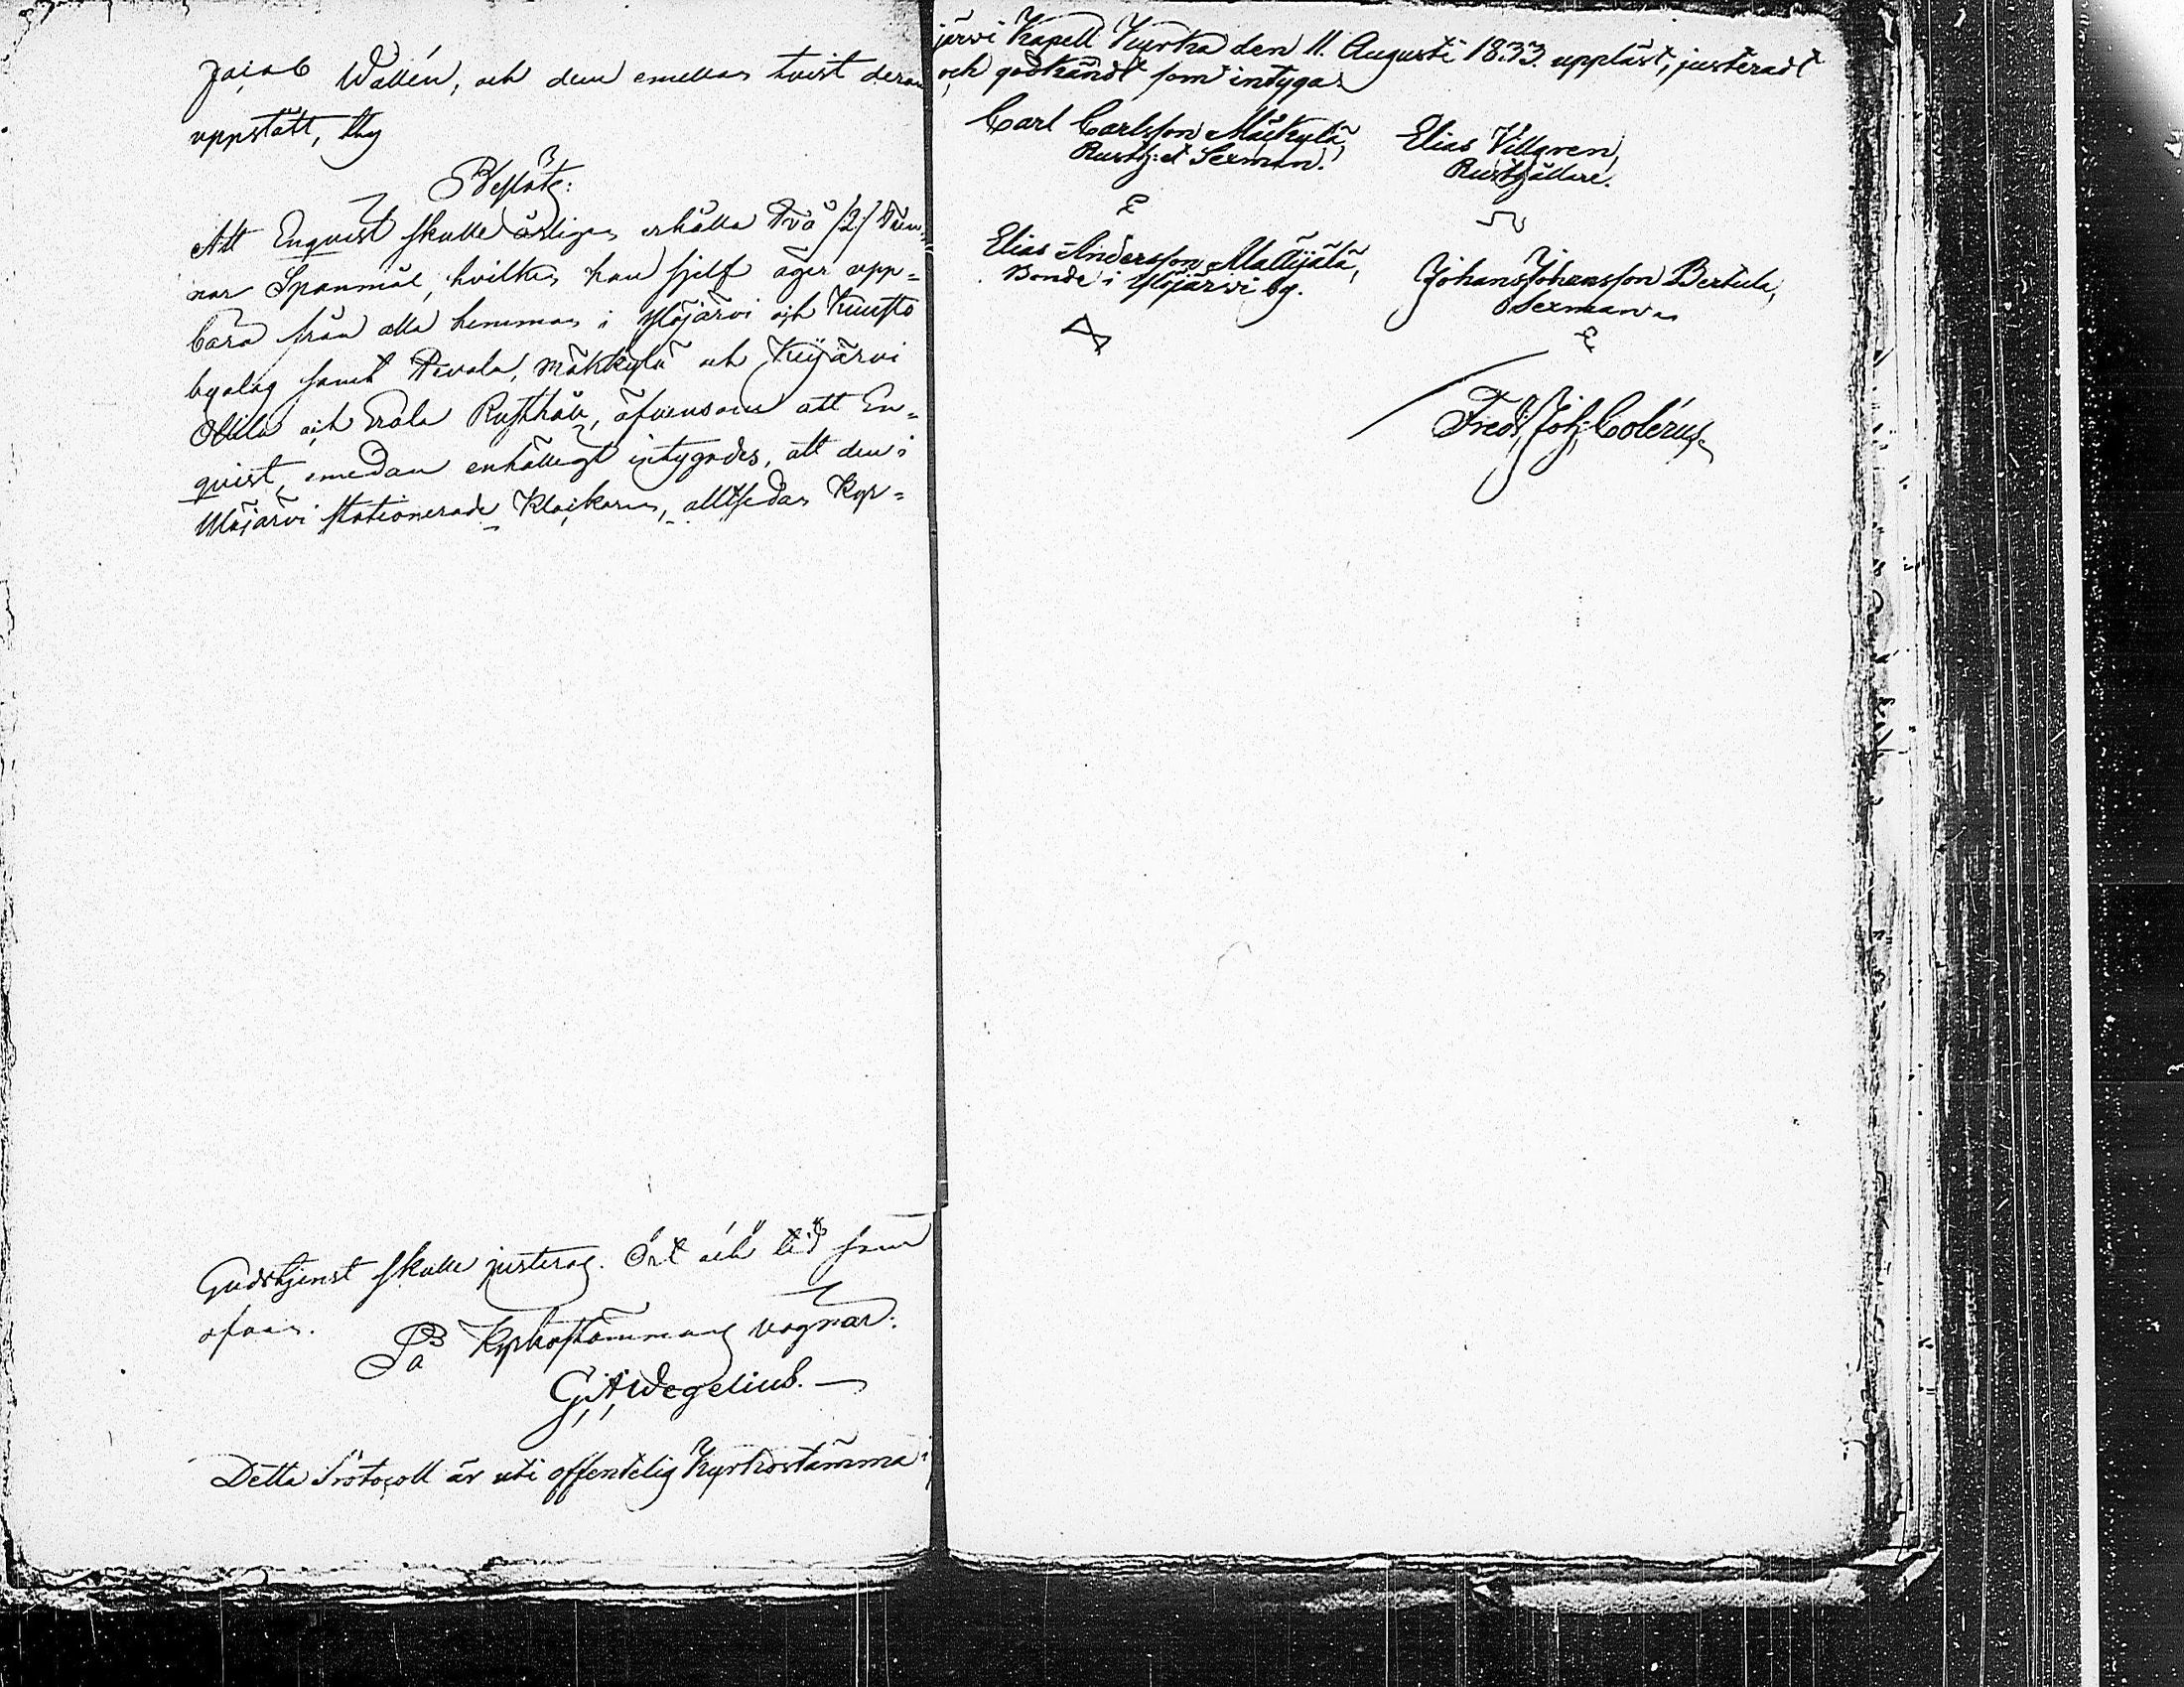 Jacob Wallén, och dem emellan tvist derom
uppstått, thy
Beslöts:
Att Enqvist skulle årligen erhålla Två /2/ Tun-
nor Spanmål, hvilken han sjelf äger upp=
bära från alla hemman i Ylöjärvi och Kuusto
byalag samt Pevola, Mäkkylä och Kyijärvi
Ollila och Erola Rusthåll, äfvensom att En=
qvist, emedan enhälligt intygades, att den i
Ylöjärvi stationerade Klockaren, alltsedan Kyr=
Gudstjenst skulle justeras. Ort och tid som
ofvan.
På Kyrkostämmans vägnar:
G. A. Wegelius.
Detta Protocoll är uti offentelig Kyrkostämma i
järvi Kapell Kyrka den 11. Augusti 1833. uppläst, justeradt
och godkändt som intygas
Carl Carlsson Mäkkylä, Elias Villgren,
Rusth: et Sexman. Rusthållare.
Elias Andersson Mattijälä, Johan Johansson Bertula,
Bonde i Ylöjärvi by. Sexman
Fredr. Joh. Colérus